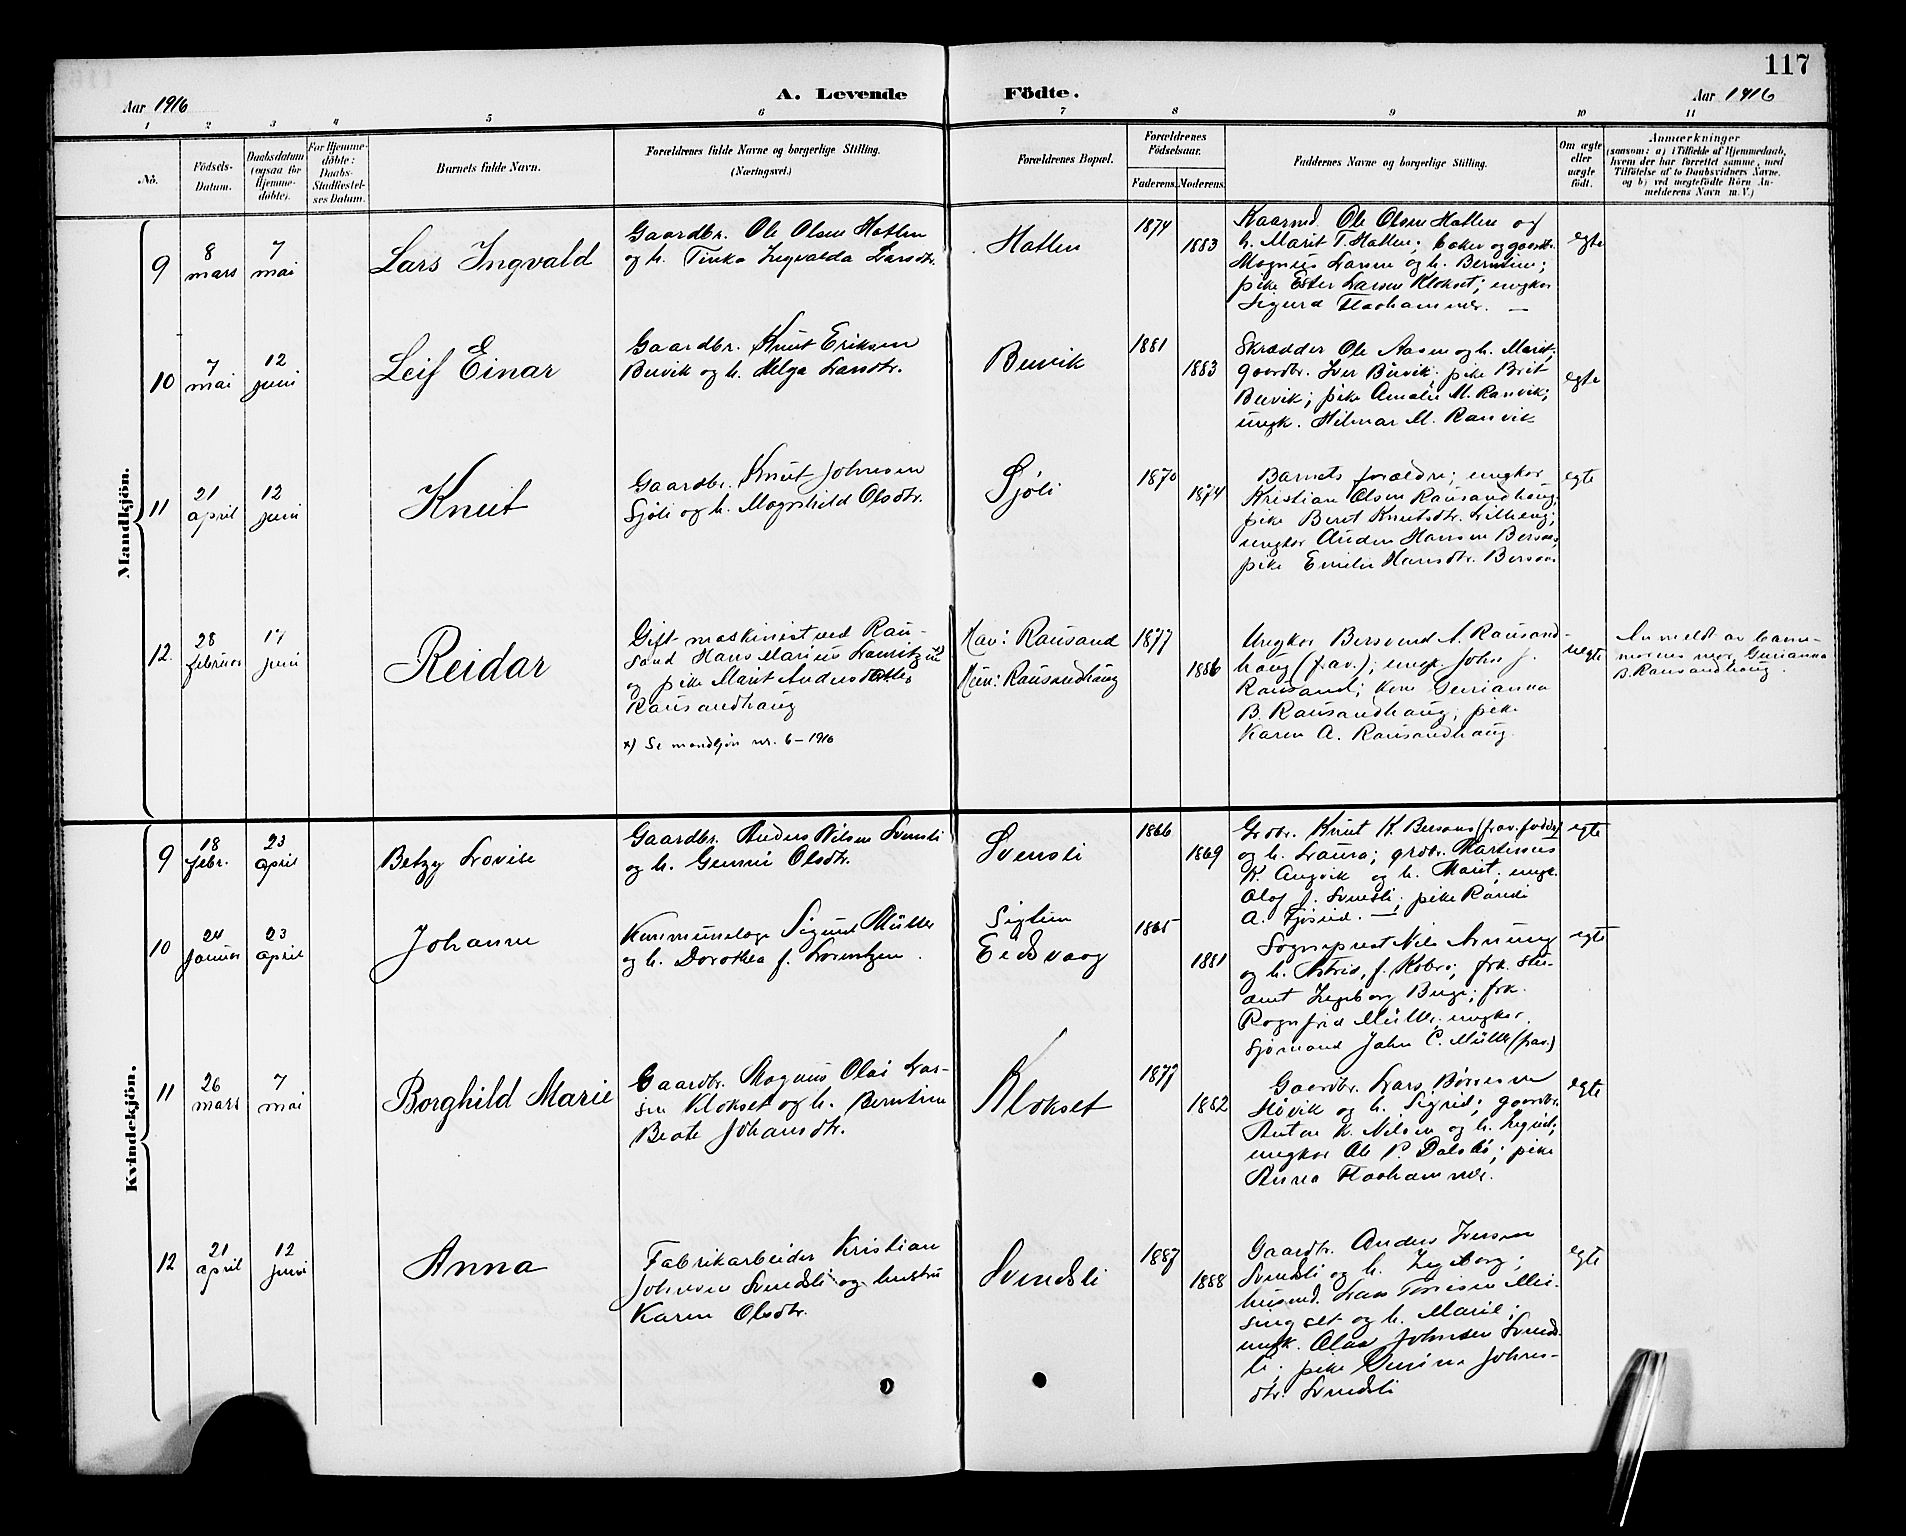 117
Aar 1916
A. Levende
Födte.
Aar 1916
1 2 3 4 5 6 7 8 9 10 11
No.
Födsels-
Datum.
Daabsdatum
(ogsaa for
Hjemme-
döbte).
For Hjemme-
döbte:
Daabs-
Stadfæstel-
ses Datum.
Barnets fulde Navn.
Forældrenes fulde Navne og borgerlige Stilling.
(Næringsvei.)
Forældrenes Bopæl.
Forældrenes
Födselsaar.
Faderens.
Moderens.
Faddernes Navne og borgerlige Stilling.
Om ægte
eller
uægte
födt.
Anmærkninger
(saasom: a) i Tilfælde af Hjemmedaab,
hvem der har forrettet samme, med
Tilföielse af to Daabsvidners Navne,
og b) ved uægtefödte Börn An-
melderens Navn m. V.)
Mandkjön.
9
8
mars
7
mai
Lars Ingvald
Gaardbr. Ole Olsen Hatlen
og h. Tinka Ingvalda Larsdtr.
Hatlen
1874
1883
Kaarmd. Ole Olsen Hatlen og
h. Marit T. Hatlen; baker og gaardbr.
Magnus Larsen og h. Berntine;
pike Ester Larsen Klokset; ungkar
Sigurd Flaahammer. —
egte
10
7
mai
12
juni
Leif Einar
Gaardbr. Knut Eriksen
Buvik og h. Helga Larsdtr.
Buvik
1881
1883
Skrædder Ole Aasen og h. Marit;
gaardbr. Iver Buvik; pike Brit
Buvik; pike Amalie M. Ranvik;
ungk. Hilmar M. Ranvik
egte
11
21
april
12
juni
Knut
Gaardbr. Knut Johnsen
Sjøli og h. Magnhild Olsdtr.
Sjøli
1870
1874
Barnets forældre; ungkar
Kristian Olsen Rausandhaug;
pike Beret Knutsdtr. Lilleeng;
ungkar Anden Hansen Bersaas;
pike Emilie Hansdtr. Bersaas
egte
12.
28
februar
17
juni
Reidar
Gift maskinist ved Rau-
sand Hans Marius Lauritzen x)
og pike Marit Andersdatter
Rausandhaug
x) Se mandkjøn nr. 6 – 1916
Hav: Rausand
Hun: Rausandhaug
1877
1886
Ungkar Bersvend A. Rausand-
haug (frav.); ungk. John J.
Rausand; kone Gurianna
B. Rausandhaug; pike
Karen A. Rausandhaug.
uegte
Anmeldt av barne-
morens mor Gurianna
B. Rausandhaug.
Kvindekjön.
9
18
febr.
23
april
Betzy Lovise
Gaardbr. Anders Nilsen Svensli
og h. Gunni Olsdtr.
Svensli
1866
1869
Grdbr. Knut K. Bersaas (frav. fadder)
og h. Laura; grdbr. Martinus
K. Angvik og h. Marit; ungk.
Olaf J. Svensli; pike Randi
A. Tjøsvid. —
egte
10
24
januar
23
april
Johanne
Kommunelæge Sigurd Müller
og h. Dorothea f. Lorentzen.
Sigtun
Eidsvaag
1865
1881
Sogneprest Nils Arnung
og h. Astrid, f. Kobro; frk. stu-
dent Ingeborg Bugge; frk.
Ragnfrid Müller; ungkar
sjømand John C. Müller (frav.)
egte
11
26
mars
7
mai
Borghild Marie
Gaardbr. Magnus Olai Lar-
sen Klokset og h. Berntine
Beate Johansdtr.
Klokset
1877
1882
Gaardbr. Lars Børresen
Høvik og h. Sigrid; gaardbr.
Anton K. Nilsen og h. Ingrid;
ungkar Ole P. Dalsbø; pike
Anna Flaahammer.
egte
12
21
april
12
juni
Anna
Fabrikarbeider Kristian
Johnsen Svendsli og hustru
Karen Olsdtr.
Svendsli
1887
1888
Gaardbr. Anders Iversen
Svendsli og h. Ingeborg;
husmd. Lars Tøresen Mei-
singset og h. Marie;
ungk. Olaf Johnsen Svends-
li; pike Gurina Johns-
dtr. Svendsli
egte